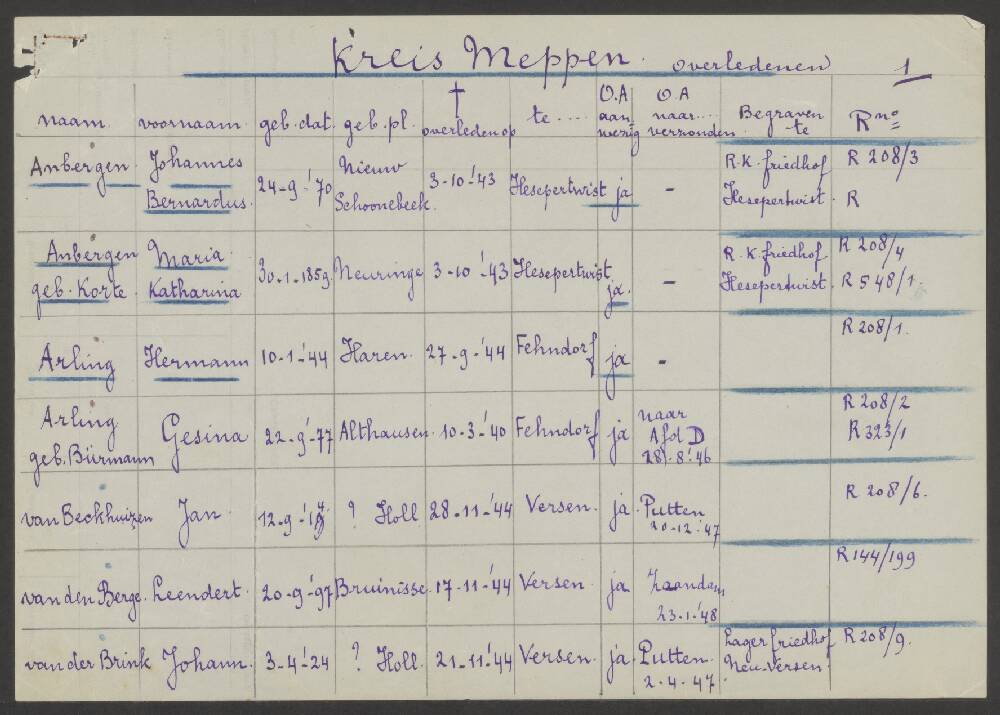 Kreis Meppen. overledenen 1
naam. voornaam. geb. dat. geb. pl. † overleden op te .... O.A aanwezig O.A naar... verzonden. Begraven te R no
Anbergen. Johannes Bernardus. 24-9-'70 Nieuw Schoonebeek. 3-10-'43 Hesepertwist ja - R.K. friedhof Hesepertwist. R 208/3 R
Anbergen geb. Korte. Maria Katharina 30-1-1859 Neuringe 3-10-'43 Hesepertwist ja. - R.K. friedhof Hesepertwist. R 208/4 R 548/1.
Arling Hermann 10-1-'44 Haren. 27-9-'44 Fehndorf ja - R 208/1.
Arling geb. Bürmann Gesina 22-9-'77 Althausen. 10-3-'40 Fehndorf ja naar Afd D 28-8-'46 R 208/2 R 323/1
van Beckhuizen Jan. ? Holl 28-11-'44 Versen. ja. Putten 20-12-'47 R 208/6.
van den Berge. Leendert. 20-9-'97 Bruinisse. 17-11-'44 Versen. ja Zaandam 23-1-'48 R 144/199
van der Brink Johann. 3-4-'24 ? Holl. 21-11-'44 Versen. ja. Putten. 2-4-'47 Lagerfriedhof Neu-Versen. R 208/9.